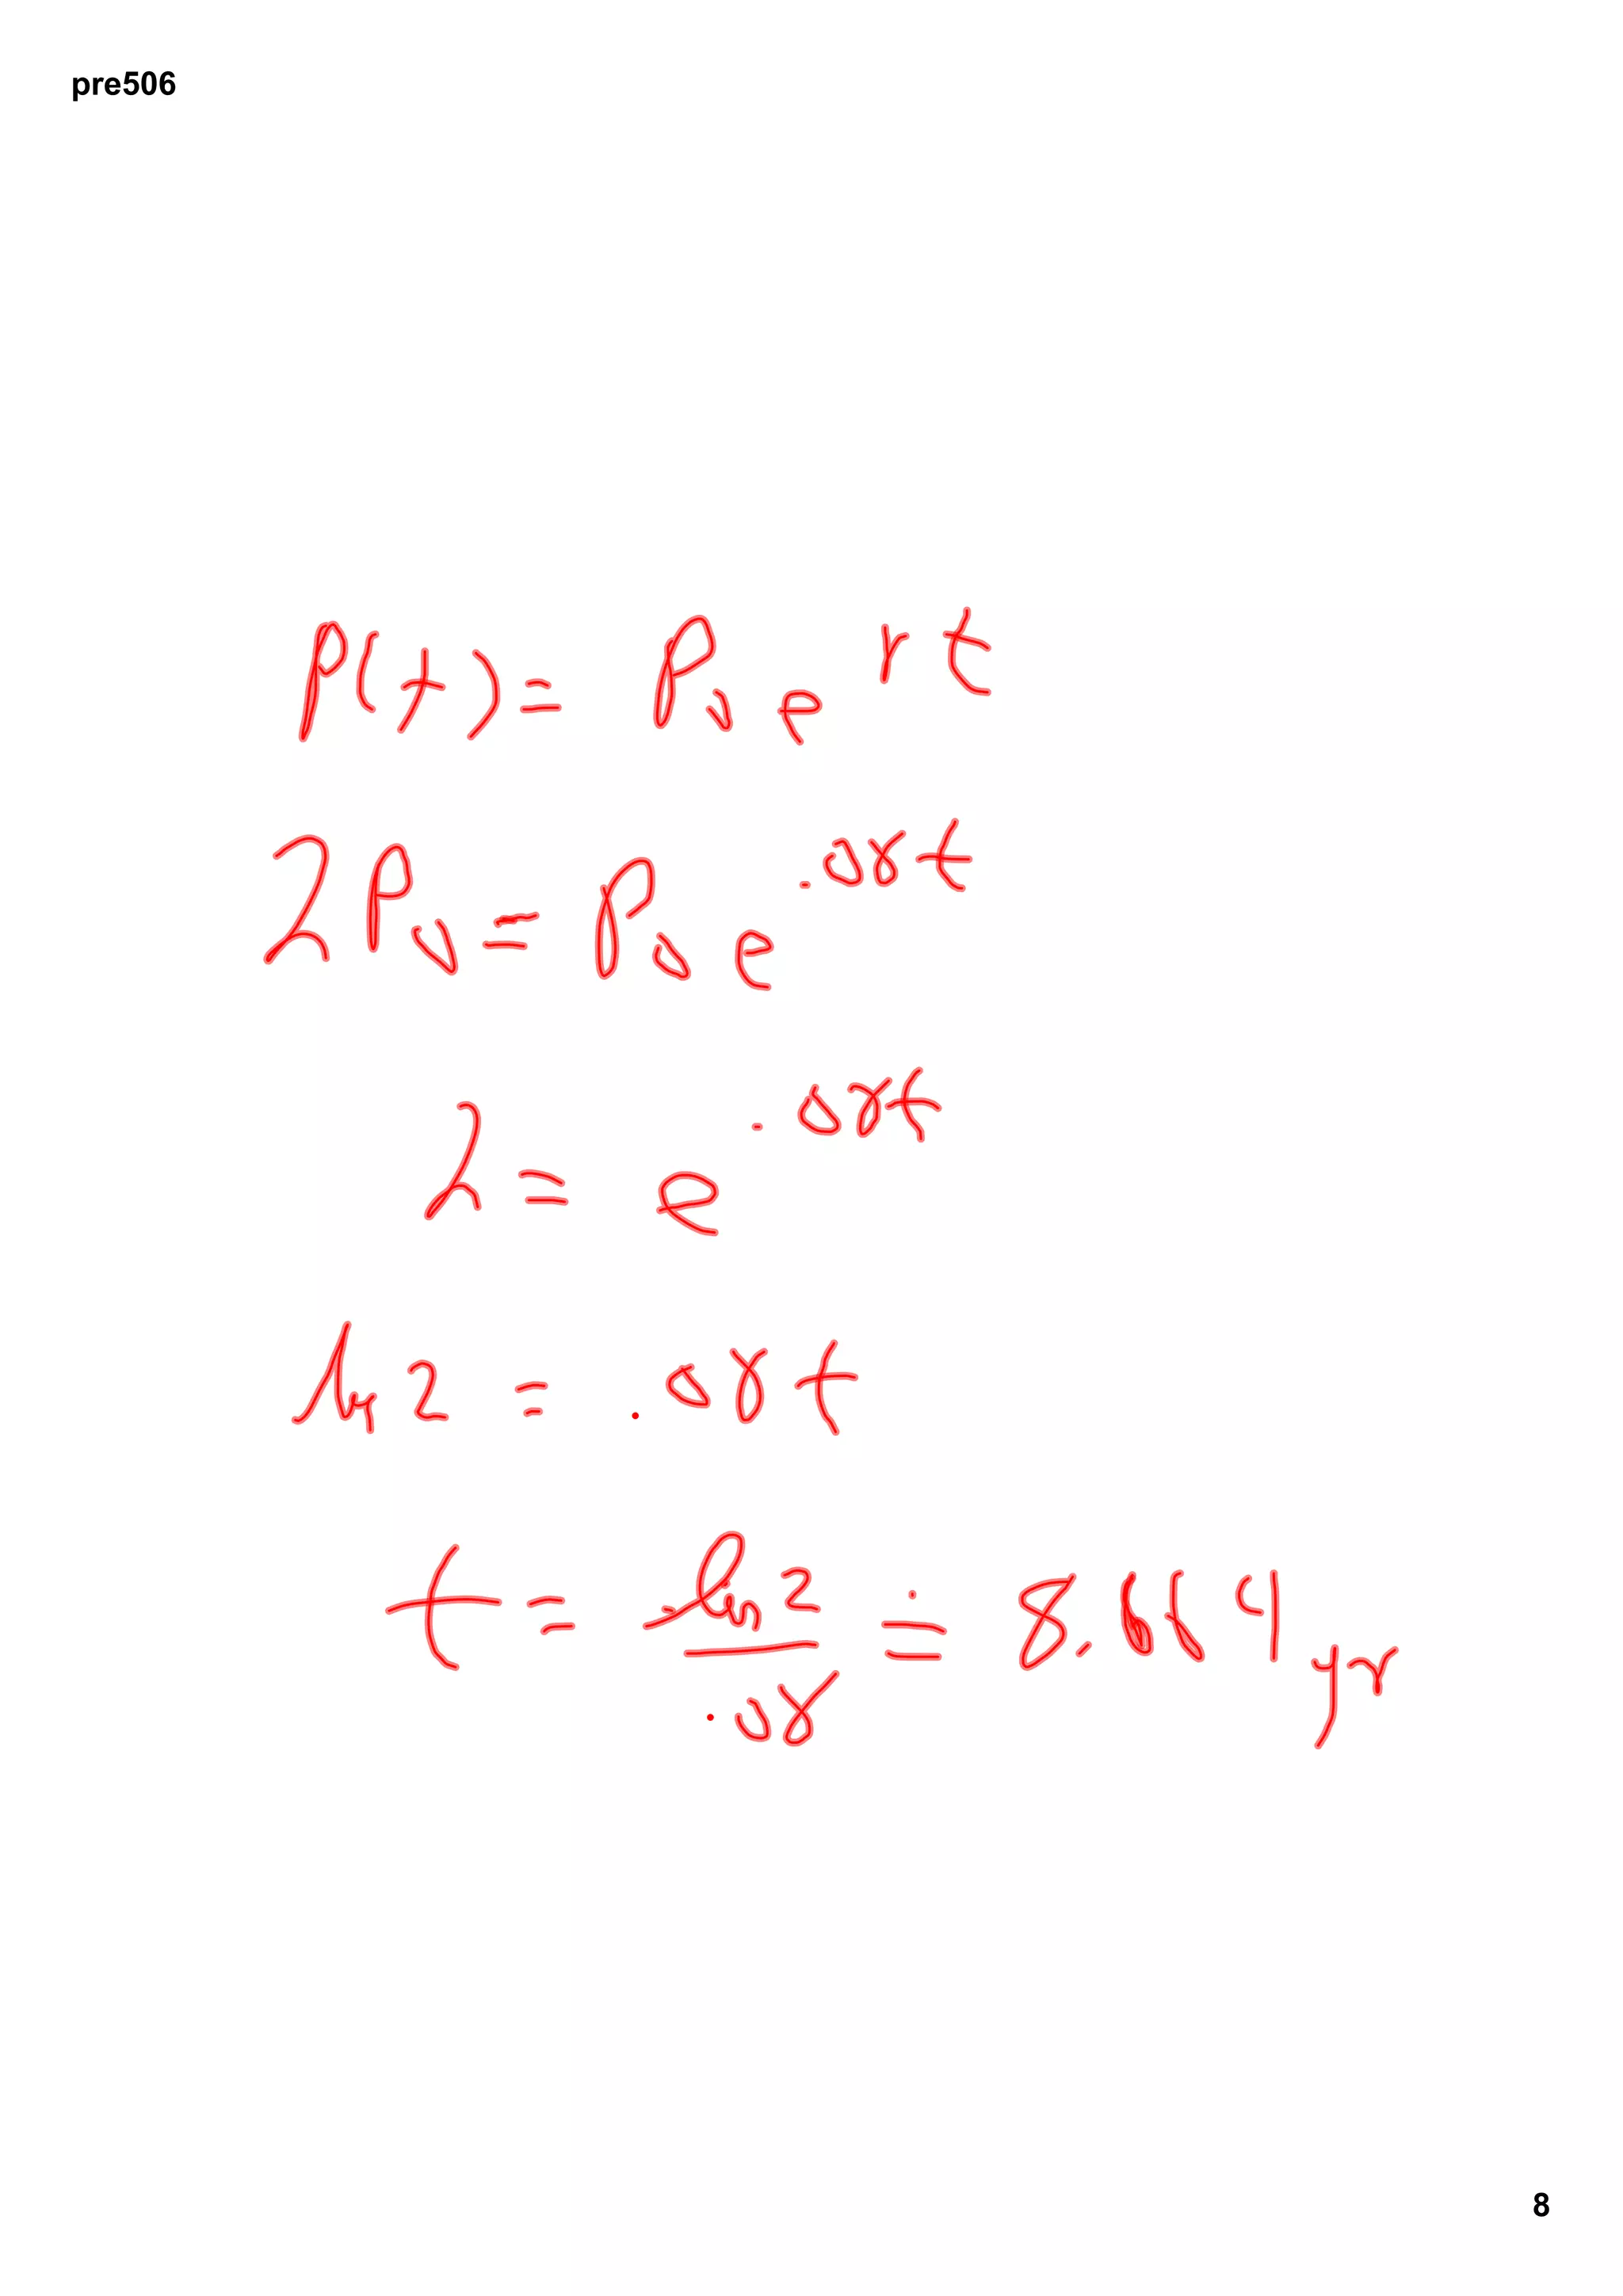 pre506
P(t) = P₀ e^rt
2P₀ = P₀ e^.08t
2 = e^.08t
ln 2 = .08t
t = ln 2 / .08 ≐ 8.664 yr
8